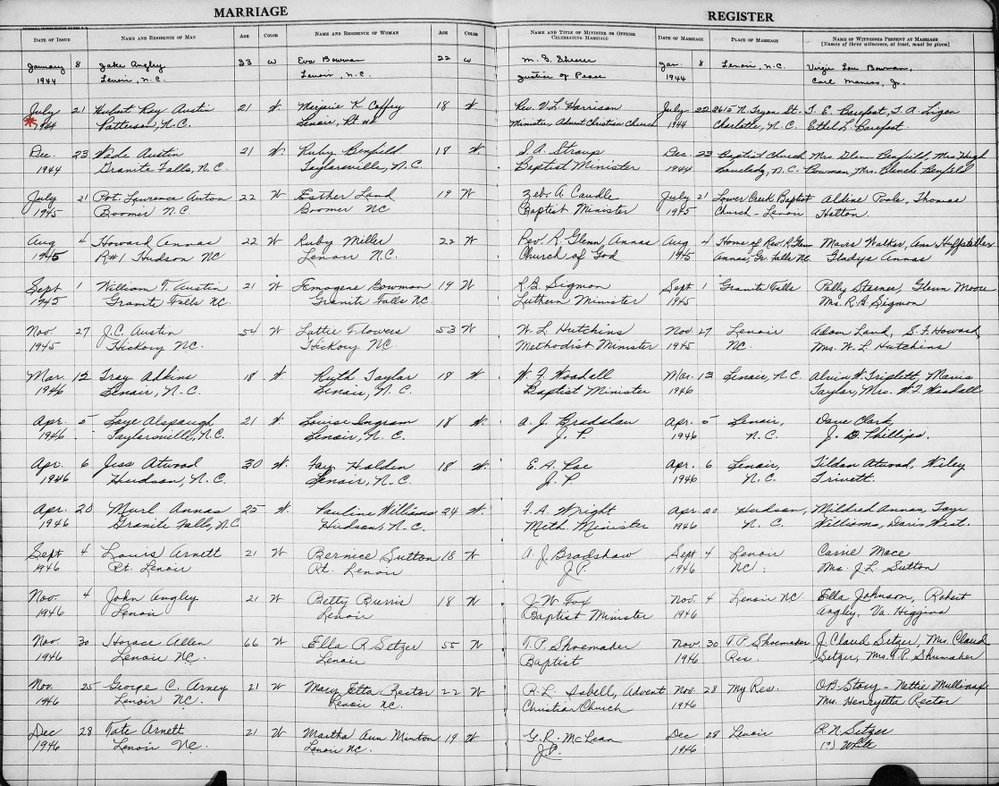 MARRIAGE REGISTER
DATE OF ISSUE NAME AND RESIDENCE OF MAN AGE COLOR NAME AND RESIDENCE OF WOMAN AGE COLOR NAME AND TITLE OF MINISTER OR OFFICER CELEBRATING MARRIAGE DATE OF MARRIAGE PLACE OF MARRIAGE NAME OF WITNESSES PRESENT AT MARRIAGE [Names of three witnesses, at least, must be given]
January 8 Jake Angley 33 W Eva Bowman 22 W Jan. 8 Lenoir, N.C. Virgie Lou Bowman,
1944 Lenoir, N.C. Lenoir, N.C. Justice of Peace 1944 Carl Jr.
July 21 Hubert Ray Austin 21 W. Marjorie K Coffey 18 W. Rev. V.L. Harrison July 22 2615 N. Tryon St. T. E. Barefoot, T. A. Ligon
*1944 Patterson, N.C. Lenoir, Rt Minister Advent Christian Church 1944 Charlotte, N.C. Ethel L. Barefoot
Dec. 23 Wade Austin 21 W. Ruby Benfield 18 W. S. A. Stroup Dec. 23 Baptist Church Mrs Glenn Benfield, Mrs Hugh
1944 Granite Falls, N.C. Taylorsville, N.C. Baptist Minister 1944 N.C. Bowman, Mrs. Blanche Benfield
July 21 Pvt. Lawrence 22 W Esther Land 19 W Zeb. A. Caudle July 21 Lower Creek Baptist Aldine Poole, Thomas
1945 Boomer N.C Boomer NC Baptist Minister 1945 Church - Lenoir Hatton.
Aug 4 Howard Annas 22 W Ruby Miller 22 W Rev. R. Glenn, Annas Aug 4 Home of Rev. R. Glenn Walker, Ann Huffstetler
1945 R#1 Hudson NC Lenoir N.C. Church of God 1945 Annas, Gr. Falls NC. Gladys Annas
Sept 1 William T. Austin 21 W Imogene Bowman 19 W R.B. Sigmon Sept 1 Granite Falls Polly Starnes, Glenn Moore
1945 Granite Falls NC. Granite Falls NC Luthern Minister 1945 Mrs. R.B Sigmon
Nov. 27 J.C. Austin 54 W Lottie Flowers 53 W W. L Hutchins Nov 27 Lenoir Adam Land, S. F. Howard,
1945 Hickory N.C. Hickory N.C. Methodist Minister 1945 NC. Mrs. W. L Hutchins
Mar. 12 Troy Adkins 18 W. Ruth Taylor 18 W. W. F. Woodall Mar. 12 Lenoir, N.C. Alvin W. Triplett, Mavis
1946 Lenoir, N.C. Lenoir, N.C. Baptist Minister 1946 Taylor, Mrs. W.F. Woodall
Apr. 5 Alspaugh 21 W. Louise Ingram 18 W. A. J. Bradshaw Apr. 5 Lenoir, Dave Clark,
1946 Taylorsville, N.C. Lenoir, N.C. J. P. 1946 N.C. J. D. Phillips.
Apr. 6 Jess Atwood 30 W. Fay Holden 18 W. E. A. Poe Apr. 6 Lenoir, Tildon Atwood, Wiley
1946 Hudson, N.C. Lenoir, N.C. J. P 1946 N.C. Trivett.
Apr. 20 Murl Annas 25 W Pauline Williams 24 W. F. A. Wright Apr. 20 Hudson, Mildred Annas, Faye
1946 Granite Falls, N.C Hudson, N.C. Meth. Minister 1946 N. C. Williams, Doris West.
Sept 4 Louis Arnett 21 W Bernice Sutton 18 W A. J. Bradshaw Sept 4 Lenoir Carrie Mace
1946 Rt. Lenoir Rt. Lenoir J.P. 1946 NC. Mrs J. L. Sutton
Nov. 4 John Angley 21 W Betty Burris 18 W J. W. Fox Nov. 4 Lenoir NC Ella Johnson, Robert
1946 Lenoir Lenoir Baptist Minister 1946 Angley, Va. Higgins
Nov. 30 Horace Allen 66 W Ella R Setzer 55 W T. P. Shoemaker Nov 30 T.P. Shoemaker J. Claud Setzer, Mrs. Claud
1946 Lenoir NC. Lenoir Baptist 1946 Res. Setzer, Mrs. T. P. Shumaker
Nov. 25 George C. Arney 21 W Mary Etta Rector 22 W R. L. Isbell, Advent Nov 28 My Res. O.B. Story - Nettie Mullinax
1946 Lenoir NC. Lenoir NC. Christian Church 1946 Mrs. Henryetta Rector
Dec 28 Tate Arnett 21 W Martha Ann Minton 19 W G. R. McLean Dec 28 Lenoir R. N Setzer
1946 Lenoir NC. Lenoir NC. J.P. 1946 (?) White